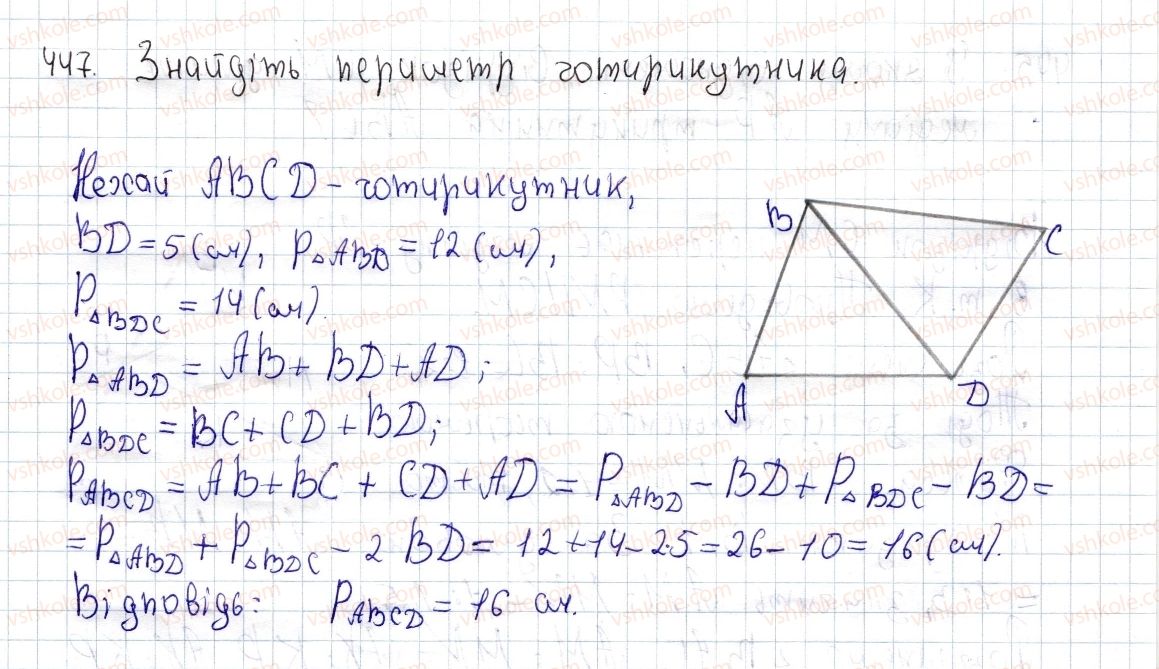 447. Знайдіть периметр чотирикутника.
Нехай ABCD - чотирикутник,
BD = 5 (см), P△ABD = 12 (см),
P△BDC = 14 (см).
P△ABD = AB + BD + AD;
P△BDC = BC + CD + BD;
PABCD = AB + BC + CD + AD = P△ABD - BD + P△BDC - BD =
= P△ABD + P△BDC - 2 BD = 12 + 14 - 2·5 = 26 - 10 = 16 (см).
Відповідь: PABCD = 16 см.
B
C
A
D
vshkole.com